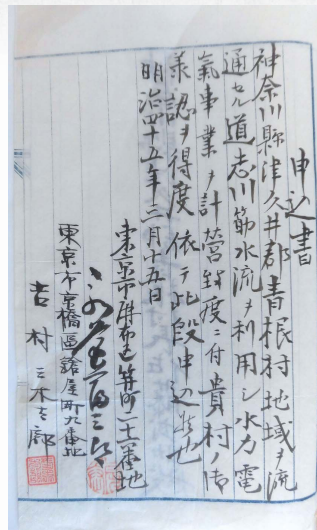 申込書
神奈川縣津久井郡青根村地域ヲ流
通セル道志川筋水流ヲ利用シ水力電
氣事業ヲ計営致度ニ付貴村ノ御
承認ヲ得度依テ此段申込候也
明治四十五年三月十五日
東京市麻布區笄町二十六番地
東京市京橋區鎗屋町九番地
吉村三木三郎